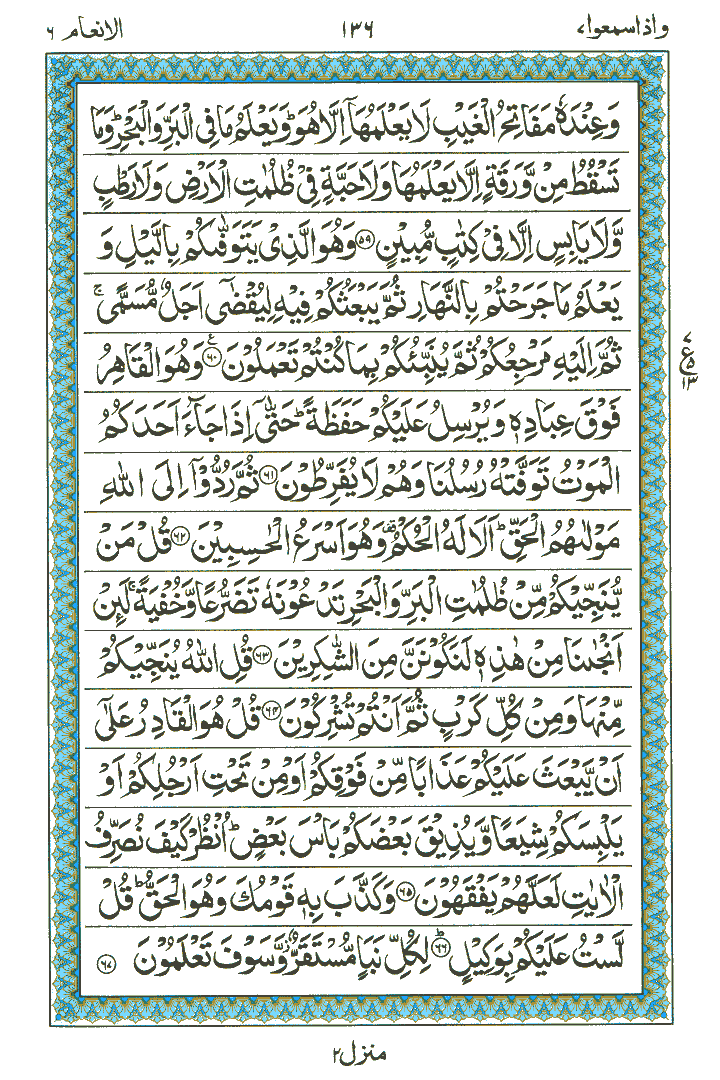 واذاسمعوا۷ ۱۳۶ الانعام ۶
وَعِنْدَهٗ مَفَاتِحُ الْغَيْبِ لَا يَعْلَمُهَاۤ اِلَّا هُوَ ؕ وَيَعْلَمُ مَا فِى الْبَرِّ وَالْبَحْرِ ؕ وَمَا
تَسْقُطُ مِنْ وَّرَقَةٍ اِلَّا يَعْلَمُهَا وَلَا حَبَّةٍ فِىْ ظُلُمٰتِ الْاَرْضِ وَلَا رَطْبٍ
وَّلَا يَابِسٍ اِلَّا فِىْ كِتٰبٍ مُّبِيْنٍ ﴿۵۹﴾ وَهُوَ الَّذِىْ يَتَوَفّٰٮكُمْ بِالَّيْلِ وَ
يَعْلَمُ مَا جَرَحْتُمْ بِالنَّهَارِ ثُمَّ يَبْعَثُكُمْ فِيْهِ لِيُقْضٰٓى اَجَلٌ مُّسَمًّى ۚ
ثُمَّ اِلَيْهِ مَرْجِعُكُمْ ثُمَّ يُنَبِّئُكُمْ بِمَا كُنْتُمْ تَعْمَلُوْنَ ﴿۶۰﴾ ع وَهُوَ الْقَاهِرُ
۷ ع ۵ ۱۳
فَوْقَ عِبَادِهٖ وَيُرْسِلُ عَلَيْكُمْ حَفَظَةً ؕ حَتّٰٓى اِذَا جَآءَ اَحَدَكُمُ
الْمَوْتُ تَوَفَّتْهُ رُسُلُنَا وَهُمْ لَا يُفَرِّطُوْنَ ﴿۶۱﴾ ثُمَّ رُدُّوْۤا اِلَى اللّٰهِ
مَوْلٰٮهُمُ الْحَقِّ ؕ اَلَا لَهُ الْحُكْمُ وَهُوَ اَسْرَعُ الْحٰسِبِيْنَ ﴿۶۲﴾ قُلْ مَنْ
يُّنَجِّيْكُمْ مِّنْ ظُلُمٰتِ الْبَرِّ وَالْبَحْرِ تَدْعُوْنَهٗ تَضَرُّعًا وَّخُفْيَةً ۚ لَئِنْ
اَنْجٰٮنَا مِنْ هٰذِهٖ لَنَكُوْنَنَّ مِنَ الشّٰكِرِيْنَ ﴿۶۳﴾ قُلِ اللّٰهُ يُنَجِّيْكُمْ
مِّنْهَا وَمِنْ كُلِّ كَرْبٍ ثُمَّ اَنْتُمْ تُشْرِكُوْنَ ﴿۶۴﴾ قُلْ هُوَ الْقَادِرُ عَلٰٓى
اَنْ يَّبْعَثَ عَلَيْكُمْ عَذَابًا مِّنْ فَوْقِكُمْ اَوْ مِنْ تَحْتِ اَرْجُلِكُمْ اَوْ
يَلْبِسَكُمْ شِيَعًا وَّيُذِيْقَ بَعْضَكُمْ بَاْسَ بَعْضٍ ؕ اُنْظُرْ كَيْفَ نُصَرِّفُ
الْاٰيٰتِ لَعَلَّهُمْ يَفْقَهُوْنَ ﴿۶۵﴾ وَكَذَّبَ بِهٖ قَوْمُكَ وَهُوَ الْحَقُّ ؕ قُلْ
لَّسْتُ عَلَيْكُمْ بِوَكِيْلٍ ؕ ﴿۶۶﴾ لِكُلِّ نَبَاٍ مُّسْتَقَرٌّ وَّسَوْفَ تَعْلَمُوْنَ ﴿۶۷﴾
منزل۲